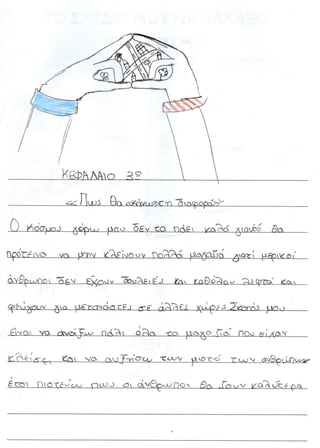 ΚΕΦΑΛΑΙΟ 3ο
«Πως θα κάνω τη διαφορά»
Ο κόσμος γύρω μου δεν τα πάει καλά γιαυτό θα
πρότεινα να μην κλείνουν πολλά μαγαζιά γιατί μερικοί
άνθρωποι δεν έχουν δουλειές και καθόλου λεφτά και
φεύγουν για μετανάστες σε άλλες χώρες. Σκοπός μου
είναι να ανοίξω πάλι όλα τα μαγαζιά που είχαν
κλείσει και να αυξήσω των μιστό των ανθρώπων
έτσι πιστεύω πως οι άνθρωποι θα ζουν καλύτερα